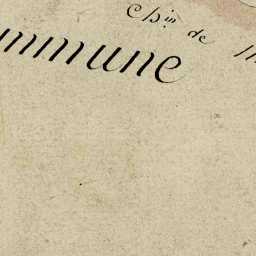 Ch.in de
ommune